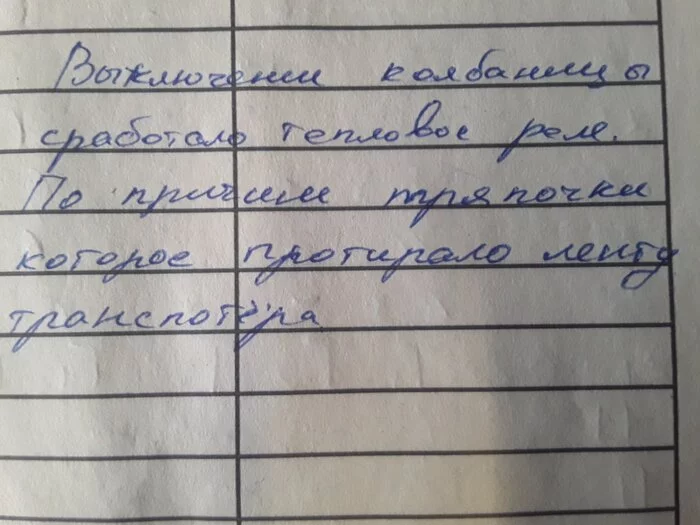 Выключении колбаницы
сработало тепловое реле.
По причине тряпочки
которое протирало ленту
транспотёра